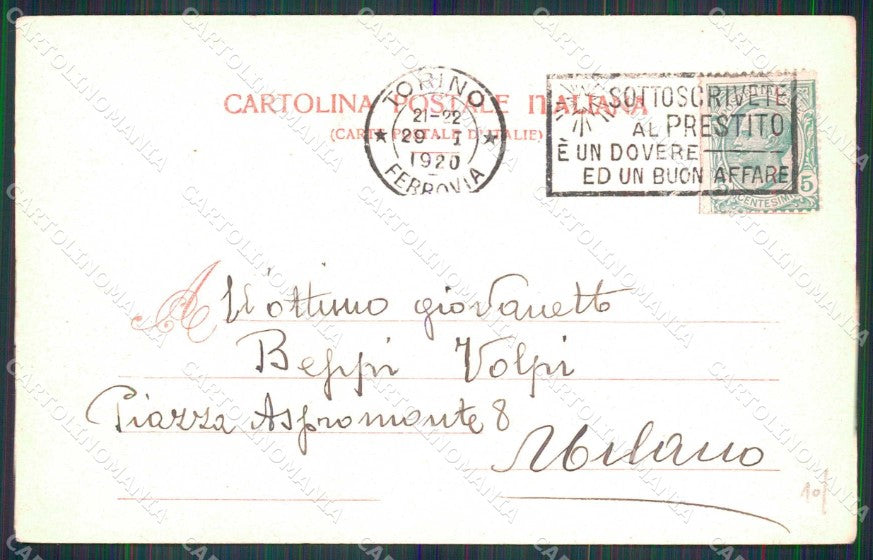 CARTOLINA POSTALE ITALIANA
(CARTE POSTALE D'ITALIE)
TORINO
21-22
29 I
1920
FERROVIA
SOTTOSCRIVETE
AL PRESTITO
È UN DOVERE
ED UN BUON AFFARE
5
CENTESIMI
All'ottimo giovanetto
Beppi Volpi
Piazza Aspromonte 8
Milano
10
CARTOLINOMANIA